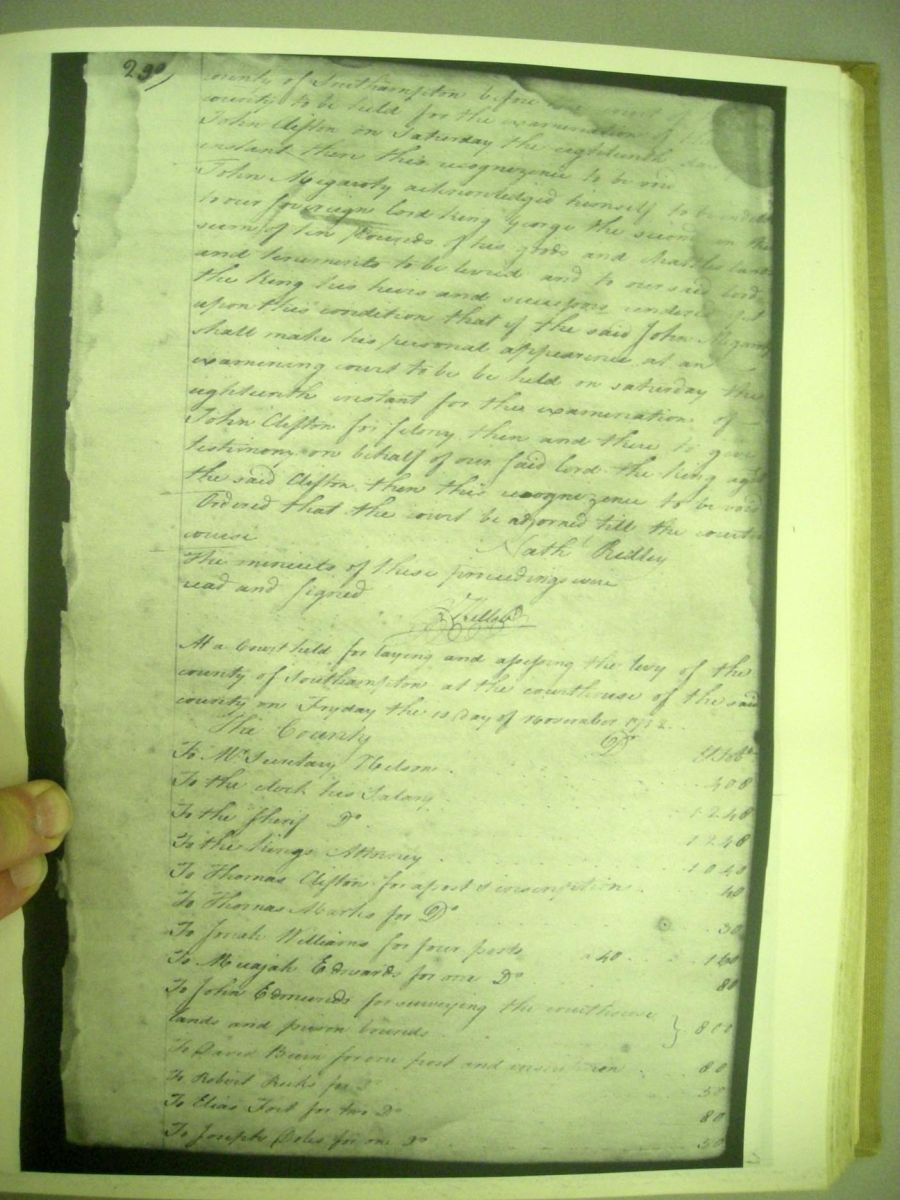 290
county of Southampton before the court of
county to be held for the examination of
John Clifton on Saturday the eighteenth day
instant then this recognizence to be void
John Megarity acknowledged himself to be indebted
to our sovereign lord King George the second in the
sum of ten pounds of his goods and chattles lands
and tenements to be levied and to our said lord
the King his heirs and successors rendered yet
upon this condition that if the said John Megarity
shall make his personal appearence at an
examining court to be be held on saturday the
eighteenth instant for the examination of
John Clifton for felony then and there to give
testimony on behalf of our said lord the King agt
the said Clifton then this recognizence to be void
Ordered that the court be adjorned till the court in
course
Nath Ridley
The minuets of these proceedings were
read and signed
At a Court held for laying and assessing the levy of the
county of Southampton at the courthouse of the said
county on Fryday the 10 Day of November
The County Dr
To Mr Secretary Nelson 408
To the clock his Salary 1248
To the sherif Do 1248
To the kings Attorney 1040
To Thomas Clifton for a post & inscription 40
To Thomas Marks for Do 30
To Josiah Williams for four posts a 40 160
To Micajah Edwards for one Do 80
To John Edmunds for surveying the courthouse
lands and prison bounds } 800
To David for one post and inscription 80
To Robert Ricks for Do 50
To Elias Fort for two Do 80
To Joseph for one Do 50